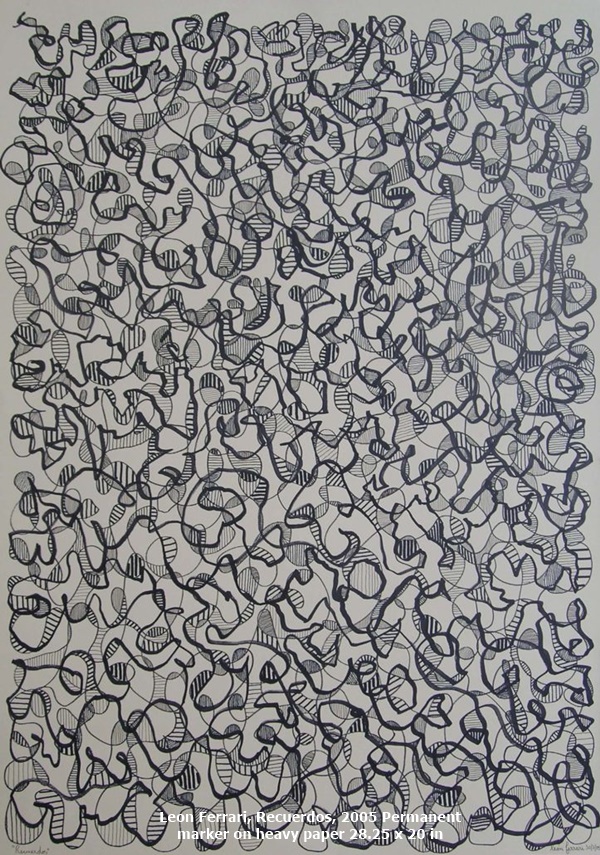 Leon Ferrari, Recuerdos, 2005 Permanent
marker on heavy paper 28.25 x 20 in
"Recuerdos"